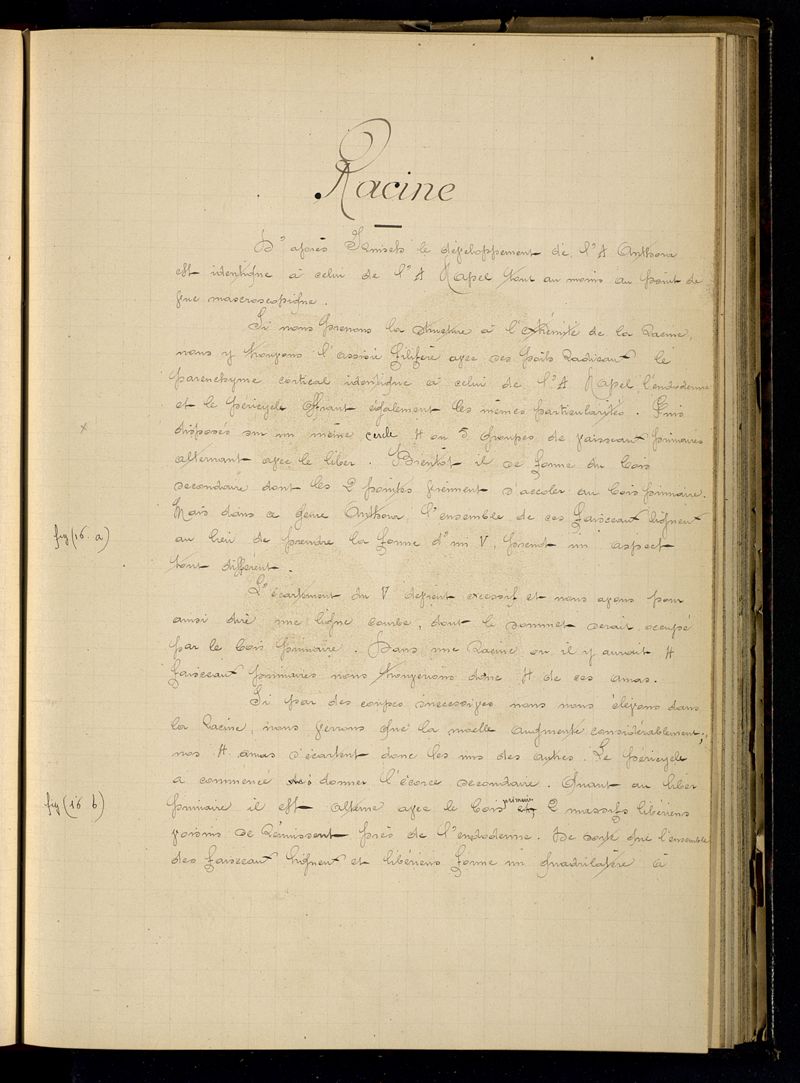 Racine
D'après Irmisch le développement de l'A Anthora
est identique à celui de l'A Napel tout au moins au point de
vue macroscopique.
Si nous prenons la structure à l'extrémité de la Racine,
nous y trouvons l'assise filifère avec ses poils Radicaux le
parenchyme cortical identique à celui de l'A Napel, l'endoderme
et le péricycle offrant également les mêmes particularités. Puis
x
disposés sur un même cercle 4 ou 5 groupes de vaisseaux primaires
alternant avec le liber. Bientôt il se forme du bois
secondaire dont les 2 pointes viennent s'accoler au bois primaire.
Mais dans ce genre Anthora, l'ensemble de ces faisceaux ligneux
fig (16. a)
au lieu de prendre la forme d'un V, prend un aspect
tout différent.
L'écartement du V devient excessif et nous avons pour
ainsi dire une ligne courbe, dont le sommet serait occupé
par le bois primaire. Dans une Racine ou il y aurait 4
faisceaux primaires nous trouverions donc 4 de ces amas.
Si par des coupes successives nous nous élevons dans
la Racine, nous verrons que la moelle augmente considérablement;
nos 4 amas s'écartent donc les uns des autres. Le péricycle
a commencé à donner l'écorce secondaire. Quant au liber
fig (16 b)
primaire il est alterne avec le bois primaire et 2 massifs libériens
voisins se Réunissent près de l'endoderme. De sorte que l'ensemble
des faisceaux ligneux et libériens forme un quadrilatère à